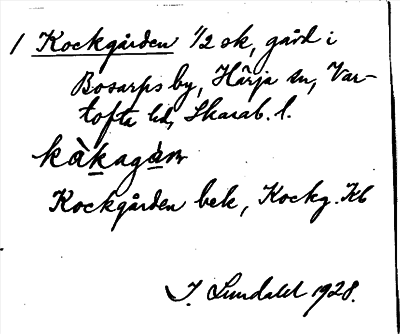 1 Kockgården 1/2 ok, gård i
Bosarps by, Hårja sn, Var-
tofta hd, Skarab. l.
kàkagàṇ
Kockgården bek, Kockg. Kb
I. Lundahl 1928.